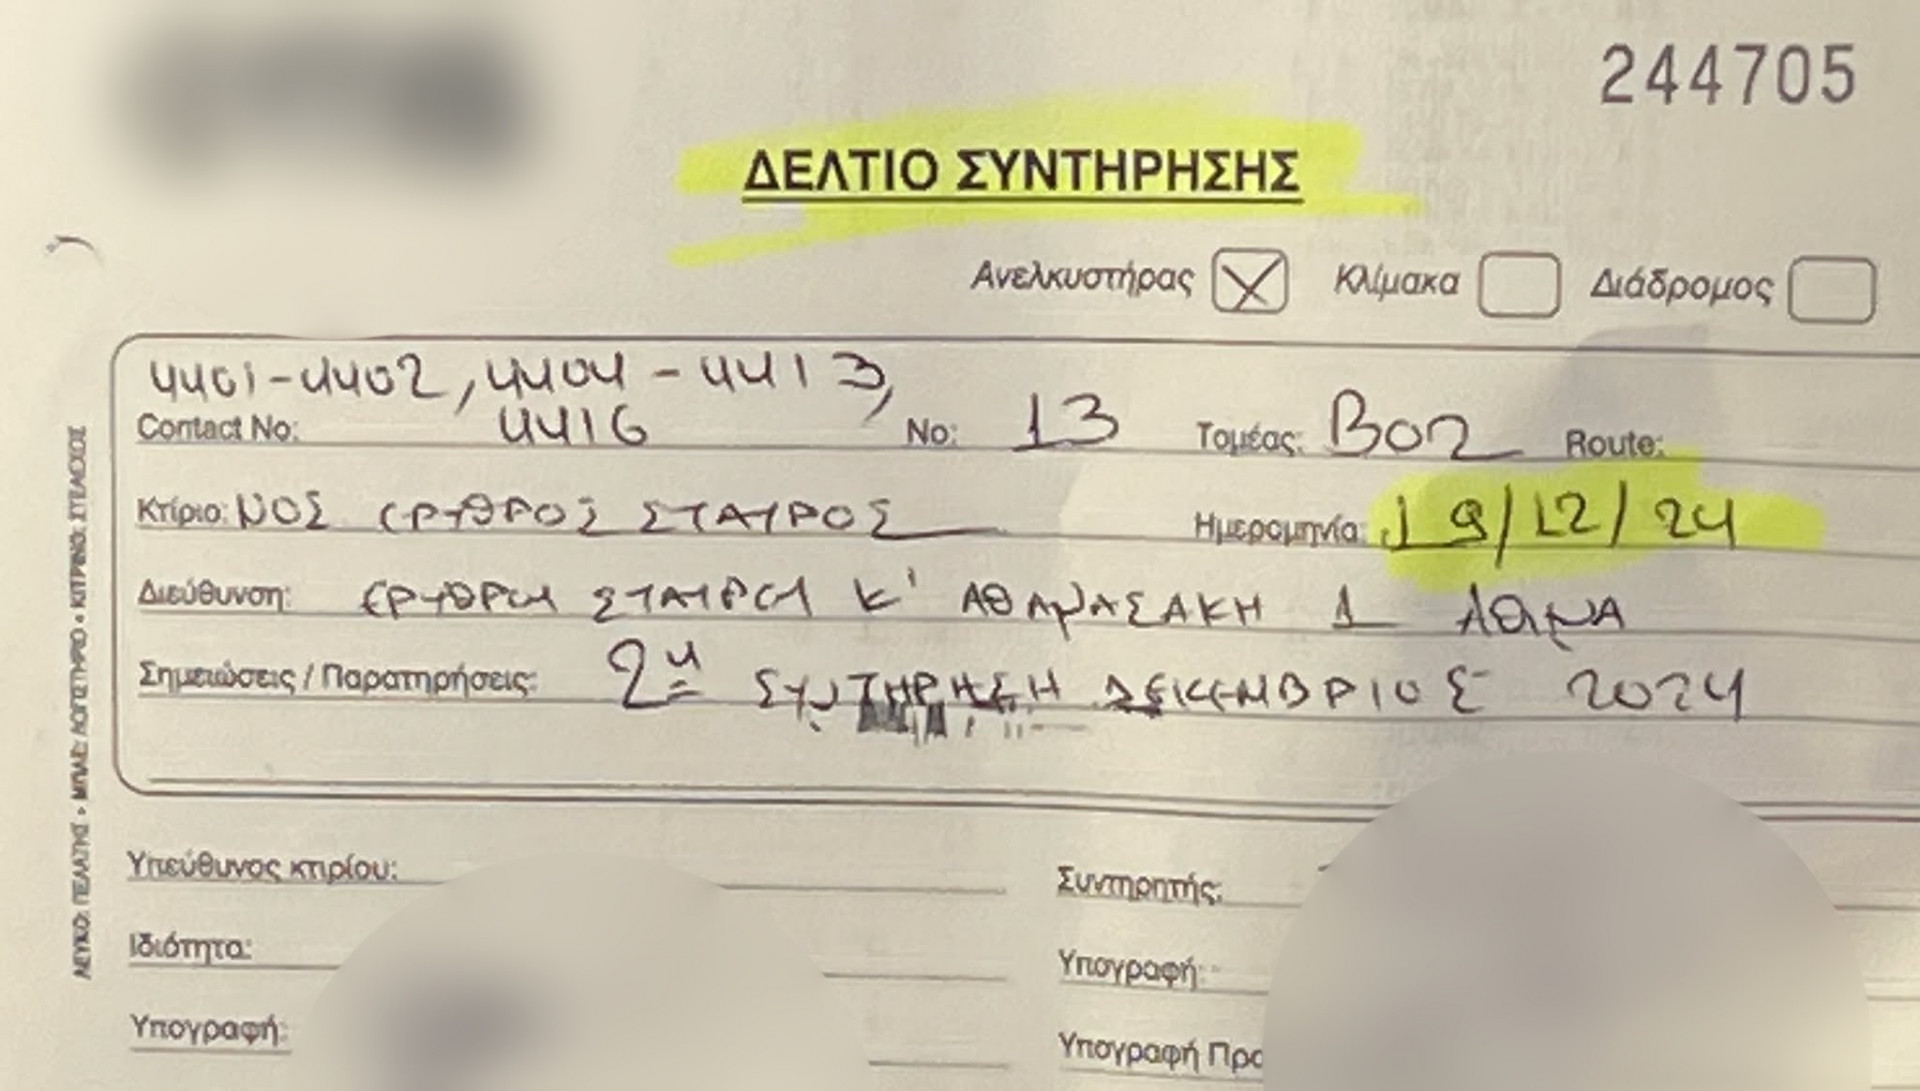 244705
ΔΕΛΤΙΟ ΣΥΝΤΗΡΗΣΗΣ
Ανελκυστήρας Κλίμακα Διάδρομος
4401-4402, 4404 - 4413,
Contact No: 4416 No: 13 Τομέας: Β02 Route:
Κτίριο: ΝΟΣ ΕΡΥΘΡΟΣ ΣΤΑΥΡΟΣ Ημερομηνία: 19/12/24
Διεύθυνση: ΕΡΥΘΡΟΥ ΣΤΑΥΡΟΥ Κ' ΑΘΑΝΑΣΑΚΗ 1 ΑΘΗΝΑ
Σημειώσεις / Παρατηρήσεις: 2η ΣΥΝΤΗΡΗΣΗ ΔΕΚΕΜΒΡΙΟΣ 2024
Υπεύθυνος κτιρίου: Συντηρητής:
Ιδιότητα: Υπογραφή:
Υπογραφή: Υπογραφή
ΛΕΥΚΟ: ΠΕΛΑΤΗΣ • ΜΠΛΕ: ΛΟΓΙΣΤΗΡΙΟ • ΚΙΤΡΙΝΟ: ΣΤΕΛΕΧΟΣ